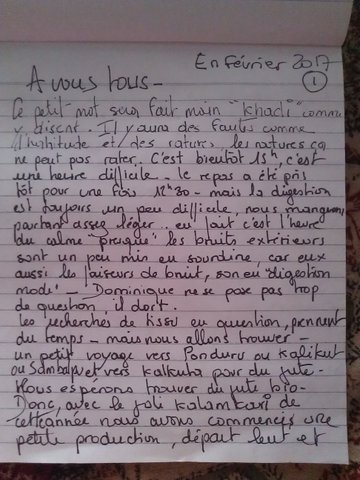 En février 2017
1
A vous tous -
Ce petit mot sera fait main "khadi" comme
y disent. Il y aura des fautes comme
d'habitude et des ratures, les natures ça
ne peut pas rater. C'est bientôt 15h, c'est
une heure difficile - le repas a été pris
tôt pour une fois 12h30 - mais la digestion
est toujours un peu difficile, nous mangeons
pourtant assez léger. en fait c'est l'heure
du calme "presque" les bruits extérieurs
sont un peu mis en sourdine, car eux
aussi les faiseurs de bruit, son en "digestion
mode" - Dominique ne se pose pas trop
de question, il dort.
les recherches de tissu en question, prennent
du temps - mais nous allons trouver -
un petit voyage vers Ponduru ou Kalikut
ou et vers Kalkuta pour du jute -
Nous espérons trouver du jute bio -
Donc, avec le joli kalamkari de
cette année nous avons commencés une
petite production, départ lent et